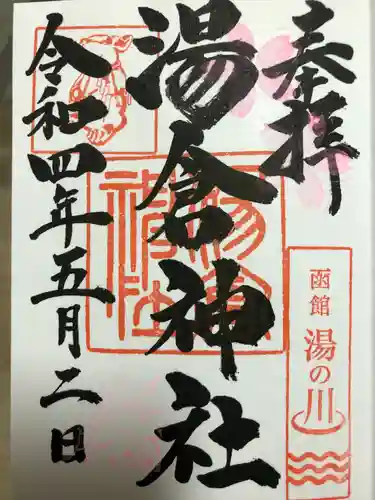 奉拝
函館
湯の川
湯倉神社
令和四年五月二日